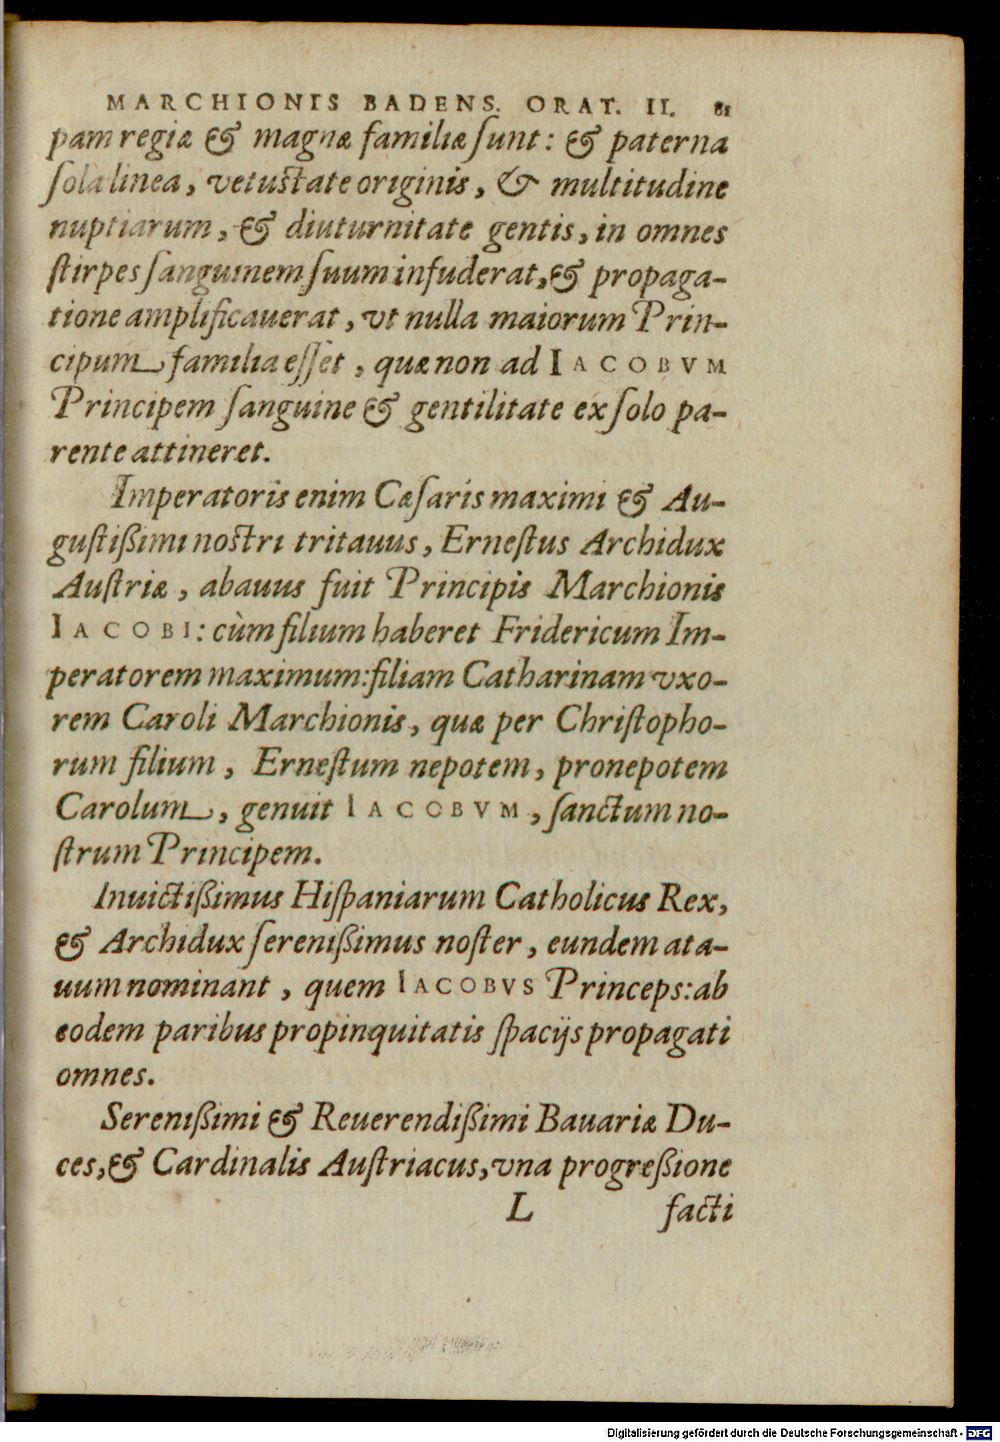 MARCHIONIS BADENS. ORAT. II. 81
pam regiæ & magnæ familiæ sunt: & paterna
sola linea, vetustate originis, & multitudine
nuptiarum, & diuturnitate gentis, in omnes
stirpes sanguinem suum infuderat, & propaga-
tione amplificauerat, vt nulla maiorum Prin-
cipum familia esset, quæ non ad IACOBVM
Principem sanguine & gentilitate ex solo pa-
rente attineret.
Imperatoris enim Cæsaris maximi & Au-
gustißimi nostri tritauus, Ernestus Archidux
Austriæ, abauus fuit Principis Marchionis
IACOBI: cùm filium haberet Fridericum Im-
peratorem maximum: filiam Catharinam vxo-
rem Caroli Marchionis, quæ per Christopho-
rum filium, Ernestum nepotem, pronepotem
Carolum, genuit IACOBVM, sanctum no-
strum Principem.
Inuictißimus Hispaniarum Catholicus Rex,
& Archidux serenißimus noster, eundem ata-
uum nominant, quem IACOBVS Princeps: ab
eodem paribus propinquitatis spacijs propagati
omnes.
Serenißimi & Reuerendißimi Bauariæ Du-
ces, & Cardinalis Austriacus, vna progreßione
L facti
Digitalisierung gefördert durch die Deutsche Forschungsgemeinschaft - DFG